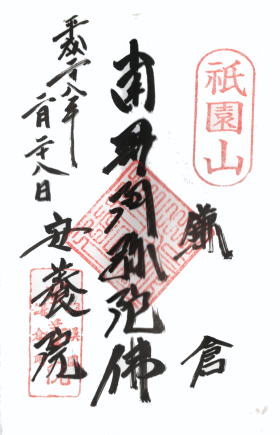 祇園山
鎌倉
南無阿弥陀佛
安養院
平成二十八年
二月二十八日